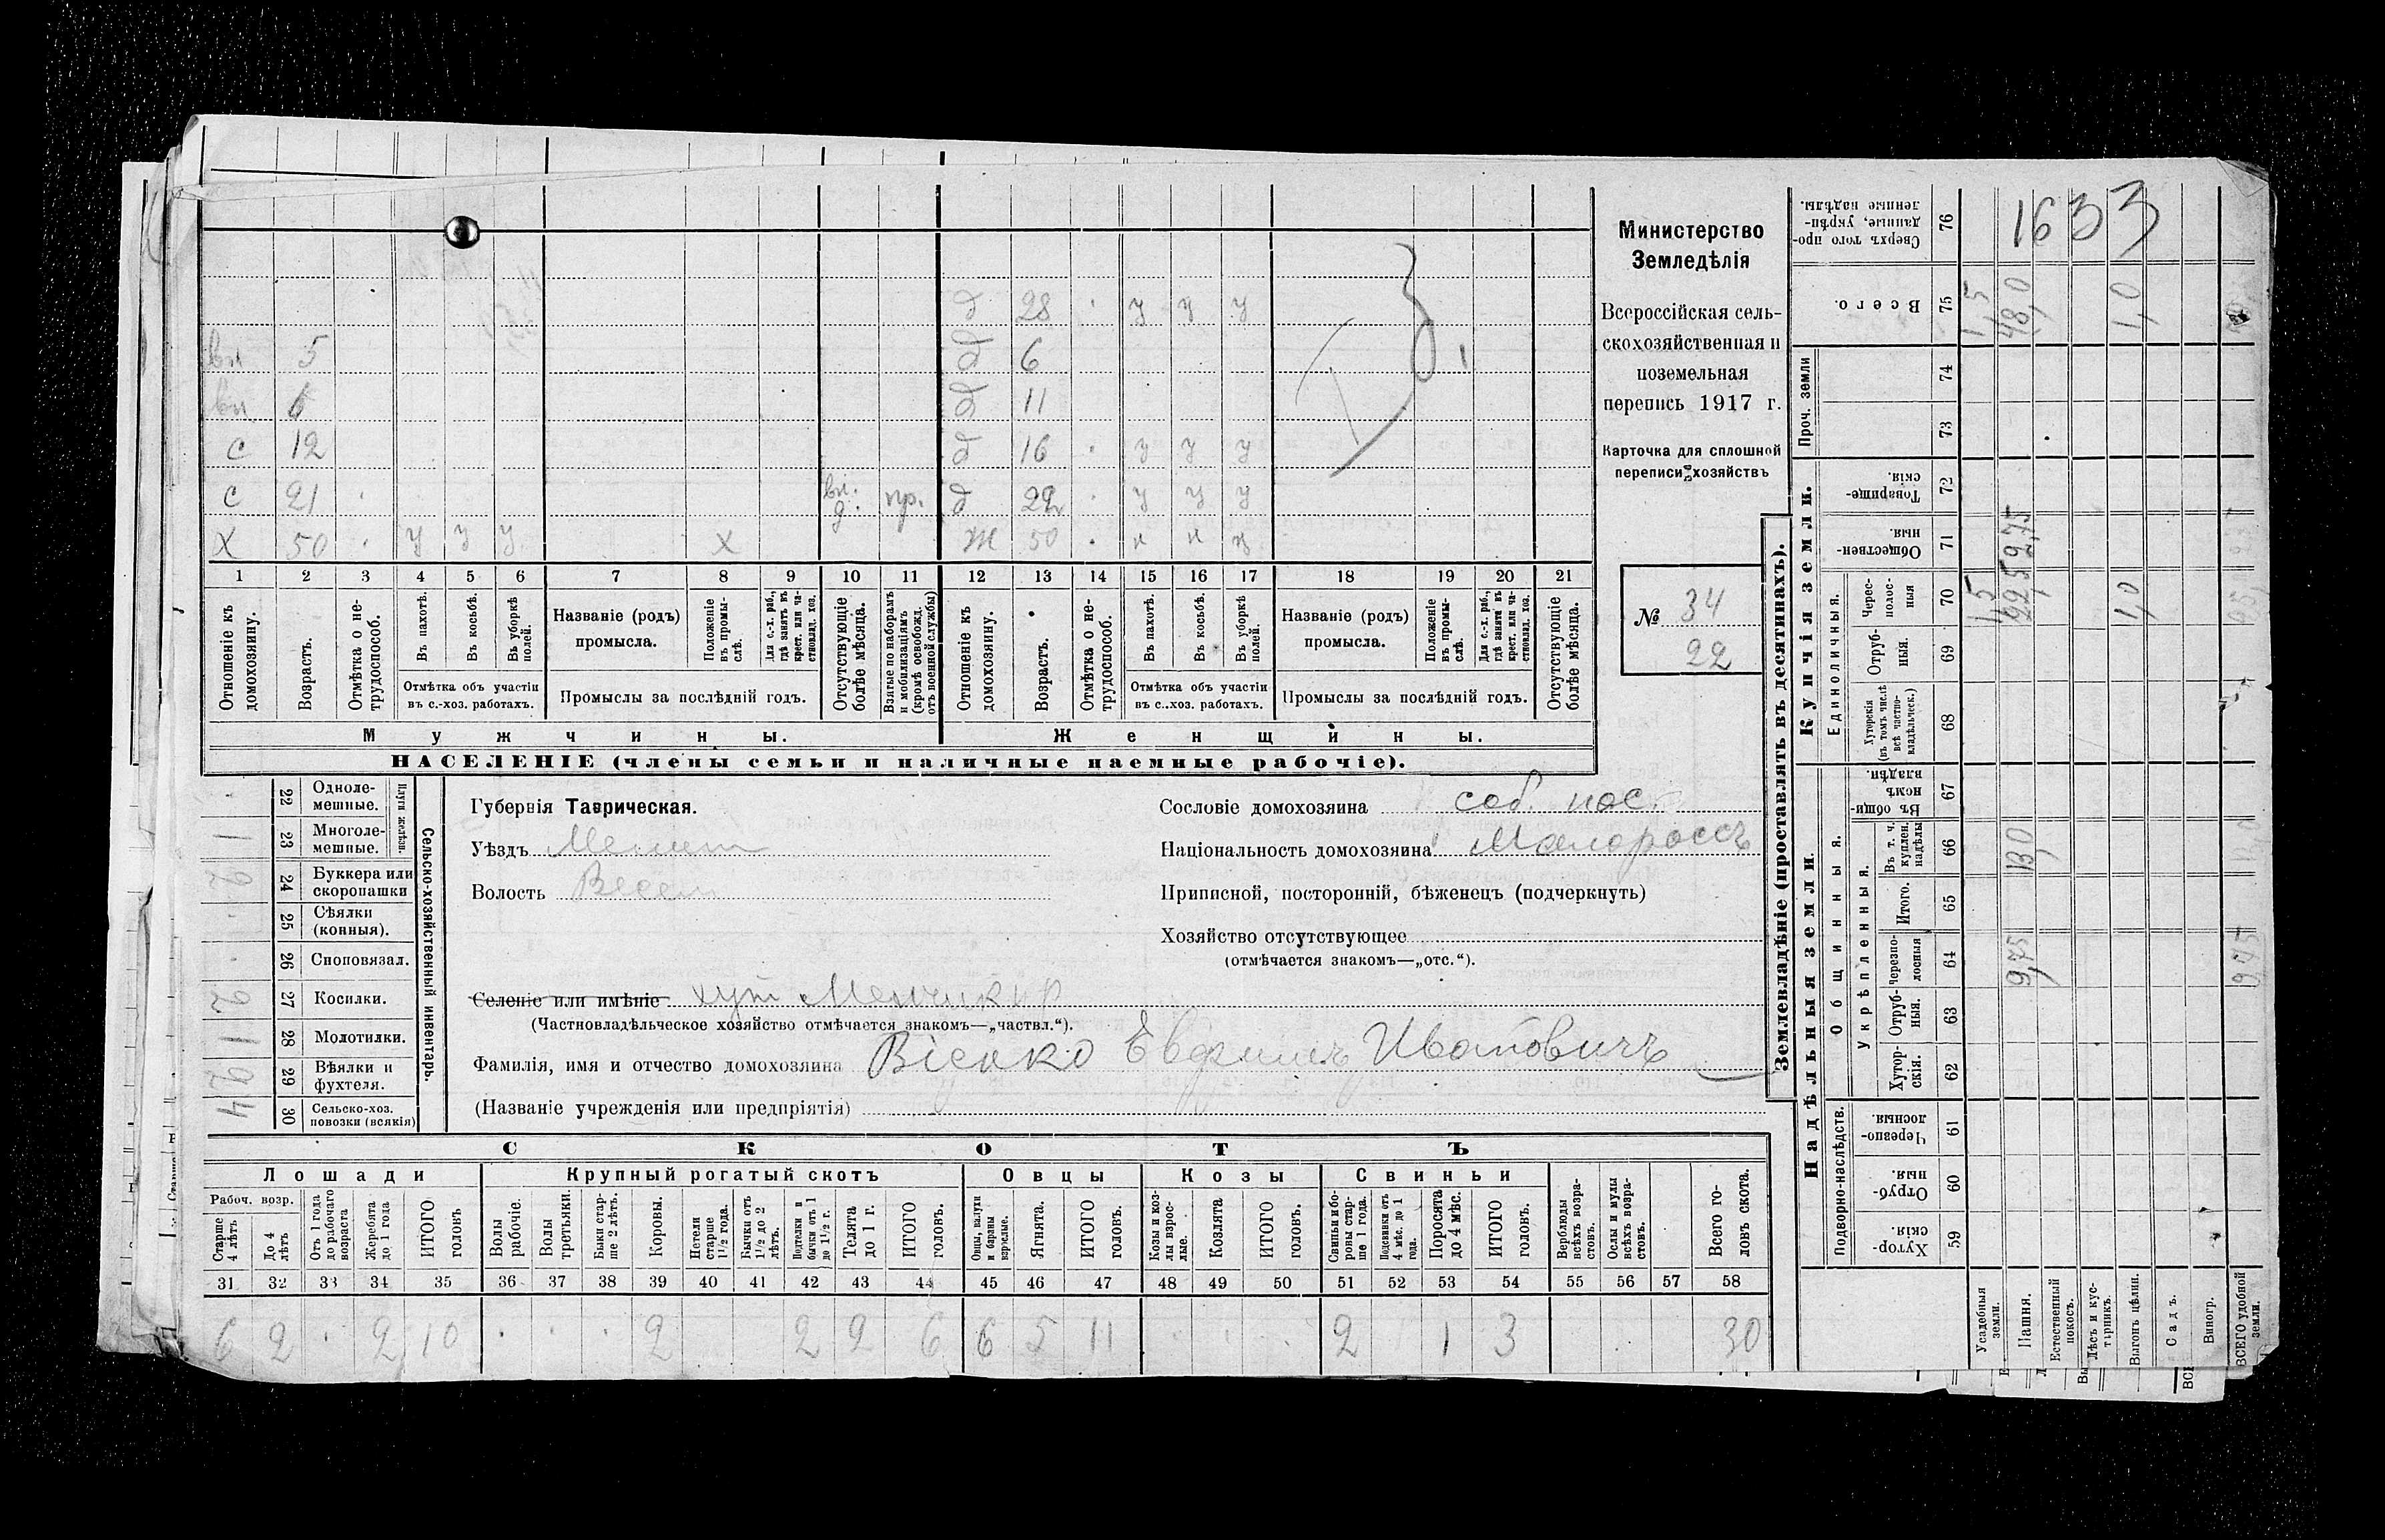 Министерство
Земледѣлія
Всероссійская сель-
скохозяйственная и
поземельная
перепись 1917 г.
Карточка для сплошной
переписи хозяйствъ
№ 34
22
д 28 у у у
вн 5 д 6
вн 6 д 11
с 12 д 16 у у у
с 21 вн. д. пр. д 22 у у у
Х 50 у у у Х Ж 50 н н у
1 2 3 4 5 6 7 8 9 10 11 12 13 14 15 16 17 18 19 20 21
Отношеніе къ домохозяину.
Возрастъ.
Отмѣтка о не-трудоспособ.
Въ пахотѣ.
Въ косьбѣ.
Въ уборкѣ полей.
Отмѣтка объ участіи въ с.-хоз. работахъ.
Названіе (родъ) промысла.
Положеніе въ промы-слѣ.
Для с.-х. раб., гдѣ занятъ въ крест. или ча-стновлад. хоз.
Промыслы за послѣдній годъ.
Отсутствующіе болѣе мѣсяца.
Взятые по наборамъ и мобилизаціямъ (кромѣ освобожд. отъ военной службы)
Отношеніе къ домохозяину.
Возрастъ.
Отмѣтка о не-трудоспособ.
Въ пахотѣ.
Въ косьбѣ.
Въ уборкѣ полей.
Отмѣтка объ участіи въ с.-хоз. работахъ.
Названіе (родъ) промысла.
Положеніе въ промы-слѣ.
Для с.-х. раб., гдѣ занятъ въ крест. или ча-стновлад. хоз.
Промыслы за послѣдній годъ.
Отсутствующіе болѣе мѣсяца.
Мужчины. Женщины.
НАСЕЛЕНІЕ (члены семьи и наличные наемные рабочіе).
Сельско-хозяйственный инвентарь.
Плуги желѣзн.
22 Одноле-мешные.
1 23 Многоле-мешные.
2 24 Буккера или скоропашки
25 Сѣялки (конныя).
26 Сноповязал.
2 27 Косилки.
1 28 Молотилки.
2 29 Вѣялки и фухтеля.
4 30 Сельско-хоз. повозки (всякія)
Губернія Таврическая.
Уѣздъ Мелит
Волость Весел
Селеніе или имѣніе хут
(Частновладѣльческое хозяйство отмѣчается знакомъ—„частвл.“).
Фамилія, имя и отчество домохозяина Ивановичъ
(Названіе учрежденія или предпріятія)
Сословіе домохозяина соб. пос.
Національность домохозяина Малороссъ
Приписной, посторонній, бѣженецъ (подчеркнуть)
Хозяйство отсутствующее
(отмѣчается знакомъ—„отс.“).
СКОТЪ
Лошади Крупный рогатый скотъ Овцы Козы Свиньи
Рабоч. возр.
Старше 4 лѣтъ
До 4 лѣтъ
Отъ 1 года до рабочаго возраста
Жеребята до 1 года
ИТОГО головъ
Волы рабочіе.
Волы третьяки.
Быки стар-ше 2 лѣтъ.
Коровы.
Нетели старше 1½ года.
Бычки отъ 1½ до 2 лѣтъ.
Подтелки и бычки отъ 1 до 1½ г.
Телята до 1 г.
ИТОГО головъ.
Овцы, валухи и бараны взрослые.
Ягнята.
ИТОГО головъ.
Козы и коз-лы взрос-лые.
Козлята
ИТОГО головъ.
Свиньи и бо-ровы стар-ше 1 года.
Подсвинки отъ 4 мѣс. до 1 года.
Поросята до 4 мѣс.
ИТОГО головъ.
Верблюды всѣхъ возра-стовъ.
Ослы и мулы всѣхъ возра-стовъ.
Всего го-ловъ скота.
31 32 33 34 35 36 37 38 39 40 41 42 43 44 45 46 47 48 49 50 51 52 53 54 55 56 57 58
6 2 2 10 2 2 2 6 6 5 11 2 1 3 30
Землевладѣніе (проставлять въ десятинахъ).
Надѣльныя земли.
Купчія земли.
Проч. земли
Подворно-наслѣдств.
Общинныя.
Укрѣпленныя.
Единоличныя.
1633
76 Сверхъ того про-данные, укрѣп-ленные надѣлы.
75 Всего. 1,5 48,0 1,0
74
73
72 Товарище-скія.
71 Обществен-ныя.
70 Черес-полос-ныя 1,5 1,0
69 Отруб-ныя.
68 Хуторскія (въ томъ числѣ всѣ частно-владѣльческ.)
67 Въ общи-номъ владѣн.
66 Въ т. ч. куплен. надѣлы 13,0
65 Итого.
64 Черезпо-лосныя 9,75 9,75
63 Отруб-ныя.
62 Хутор-скія.
61 Черезпо-лосныя.
60 Отруб-ныя.
59 Хутор-скія.
Усадебныя земли.
Пашня.
Естественный покосъ.
Лѣсъ и кус-тарникъ.
Выгонъ цѣлин.
Садъ.
Виногр.
ВСЕГО удобной земли.